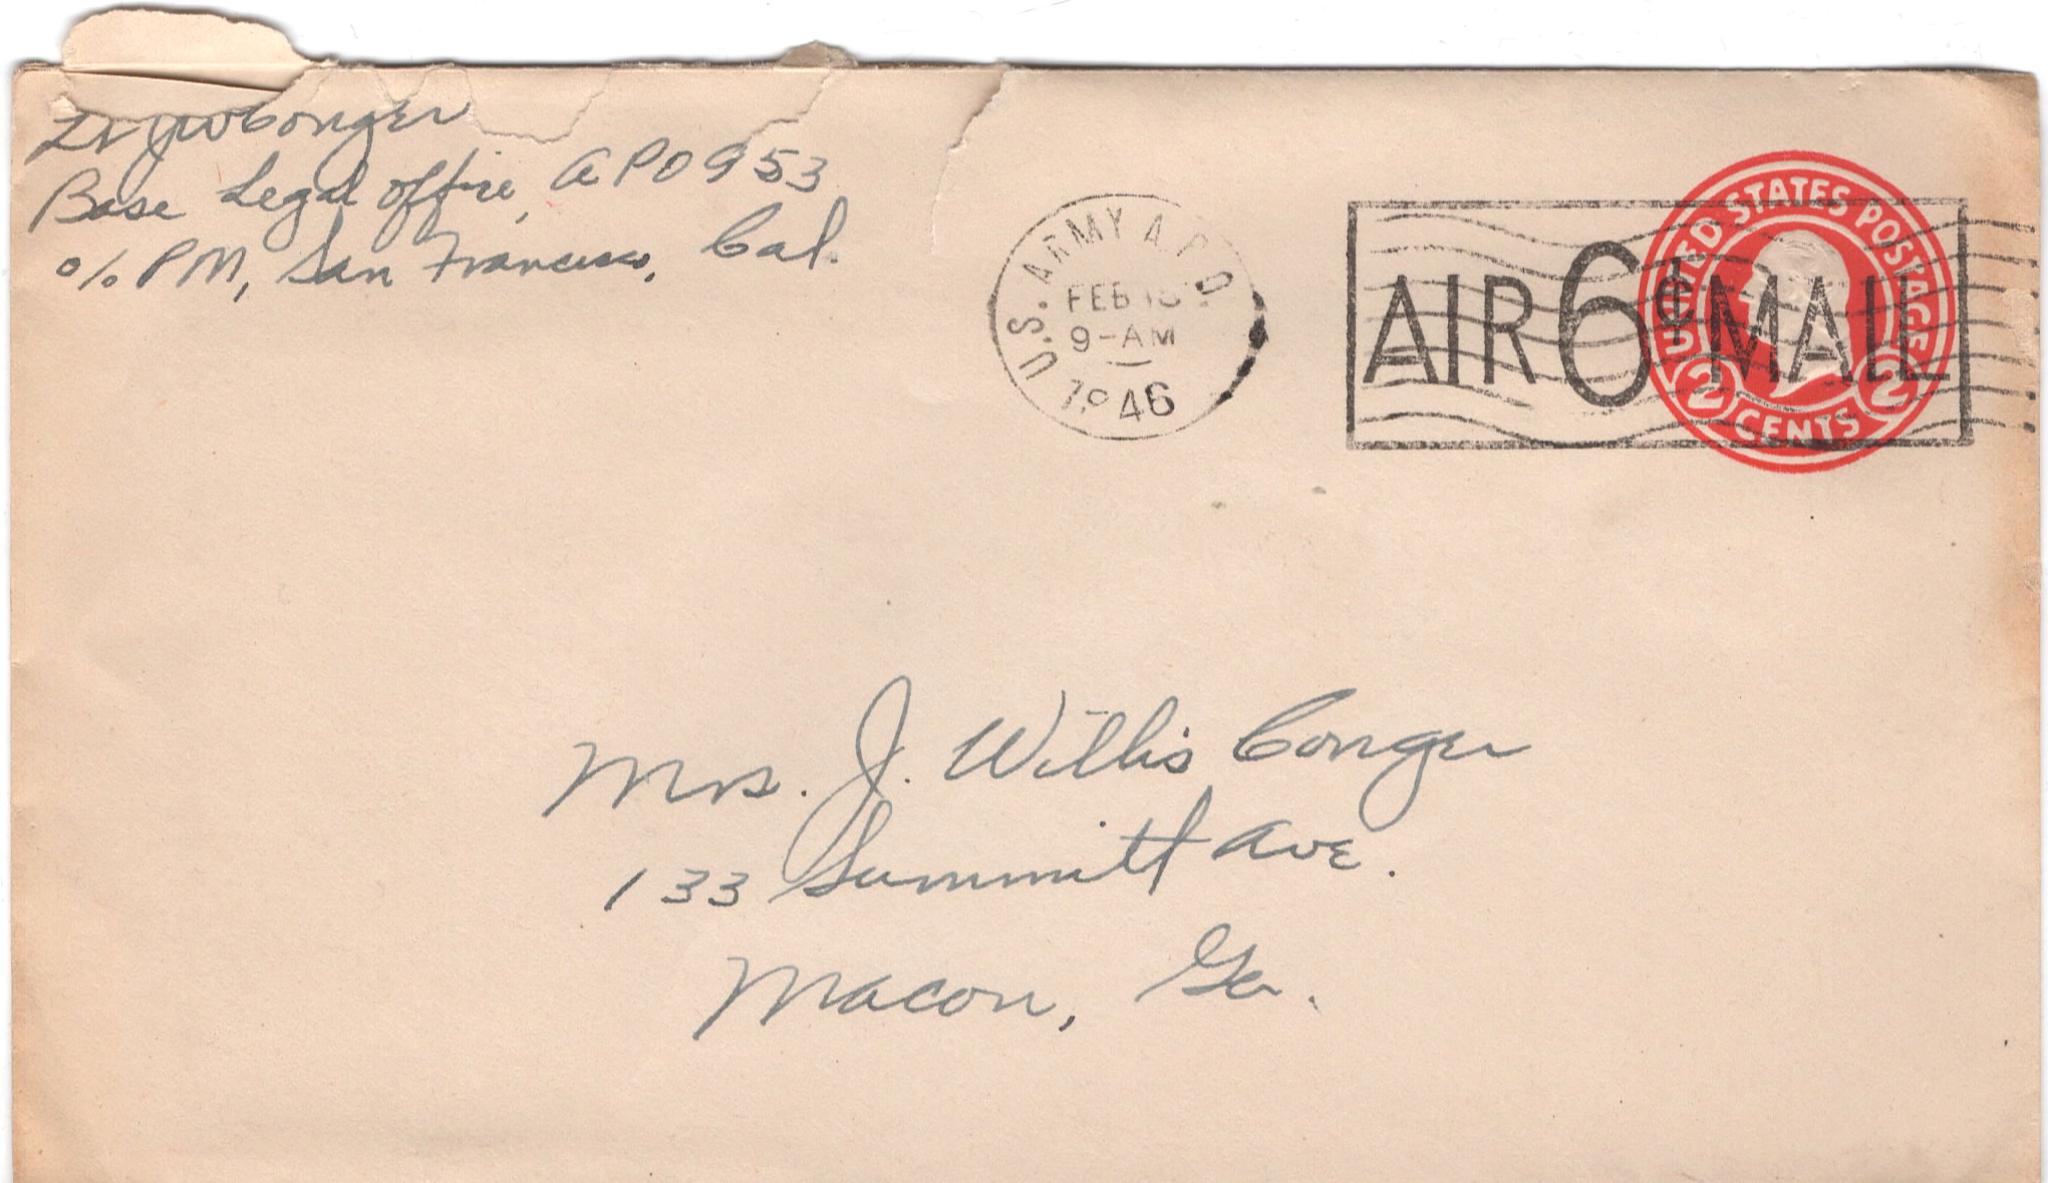 Lt JW Conger
Base Legal Office, APO 953
c/o PM, San Francisco, Cal.
U.S. ARMY A.P.O.
FEB
9-AM
1946
AIR 6¢ MAIL
UNITED STATES POSTAGE
2 CENTS 2
Mrs. J. Willis Conger
133 Summitt Ave.
Macon, Ga.